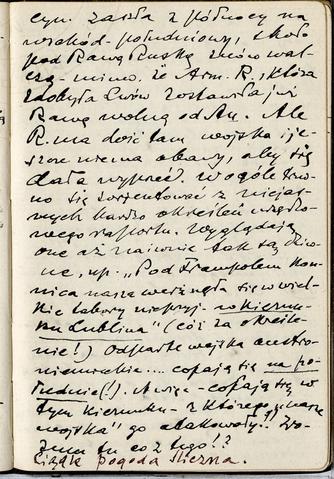 cyn. zaszła z północy na
wschód-południowy, i koło
pod Rawą Ruską znów wal-
czą - mimo, że Arm. R., która
zdobyła Lwów zostawiła już
Rawę wolną od Au. Ale
R. ma dość tam wojska i je-
szcze niema obawy, aby się
dała wyprzeć. W ogóle trud-
no się zorientować z niejas-
nych bardzo określeń urzędo-
wego raportu. Wyglądają
one aż naiwnie tak są dziw-
ne, np. „Pod Frampolem kon-
nica nasza werżnęła się w wiel-
kie tabory nieprzyj. w kierun-
ku Lublina" (cóż za określe-
nie!) Odparte wojska austro-
niemieckie... cofają się na po-
łudnie(!). A więc - cofają się w
tym kierunku - z którego „nasze
wojska" go atakowały!! Zro-
zum tu co z tego!?
Ciągle pogoda śliczna.